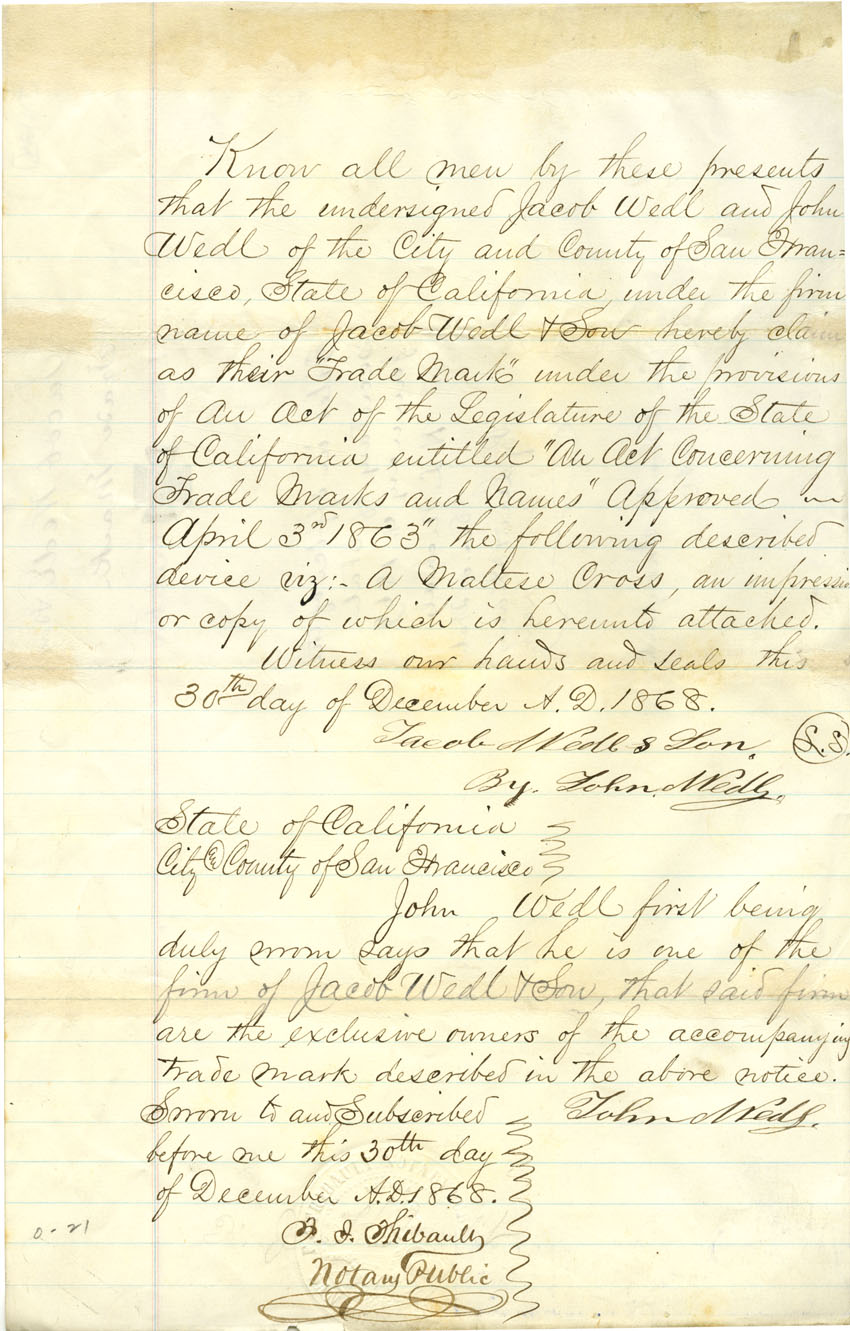 Know all men by these presents
that the undersigned Jacob Wedl and John
Wedl of the City and County of San Fran=
cisco, State of California, under the firm
name of Jacob Wedl & Son hereby claim
as their "Trade Mark" under the provisions
of An Act of the Legislature of the State
of California entitled "An Act Concerning
Trade Marks and Names" Approved
April 3rd 1863" the following described
device viz:- A Maltese Cross, an impression
or copy of which is hereunto attached.
Witness our hands and seals this
30th day of December A.D. 1868.
Jacob Wedl & Son. L.S.
By. John Wedl.
State of California
City & County of San Francisco
John Wedl first being
duly sworn says that he is one of the
firm of Jacob Wedl & Son, that said firm
are the exclusive owners of the accompanying
trade mark described in the above notice.
Sworn to and Subscribed John Wedl.
before me this 30th day
of December A.D. 1868.
F. J. Thibault
Notary Public
0-21